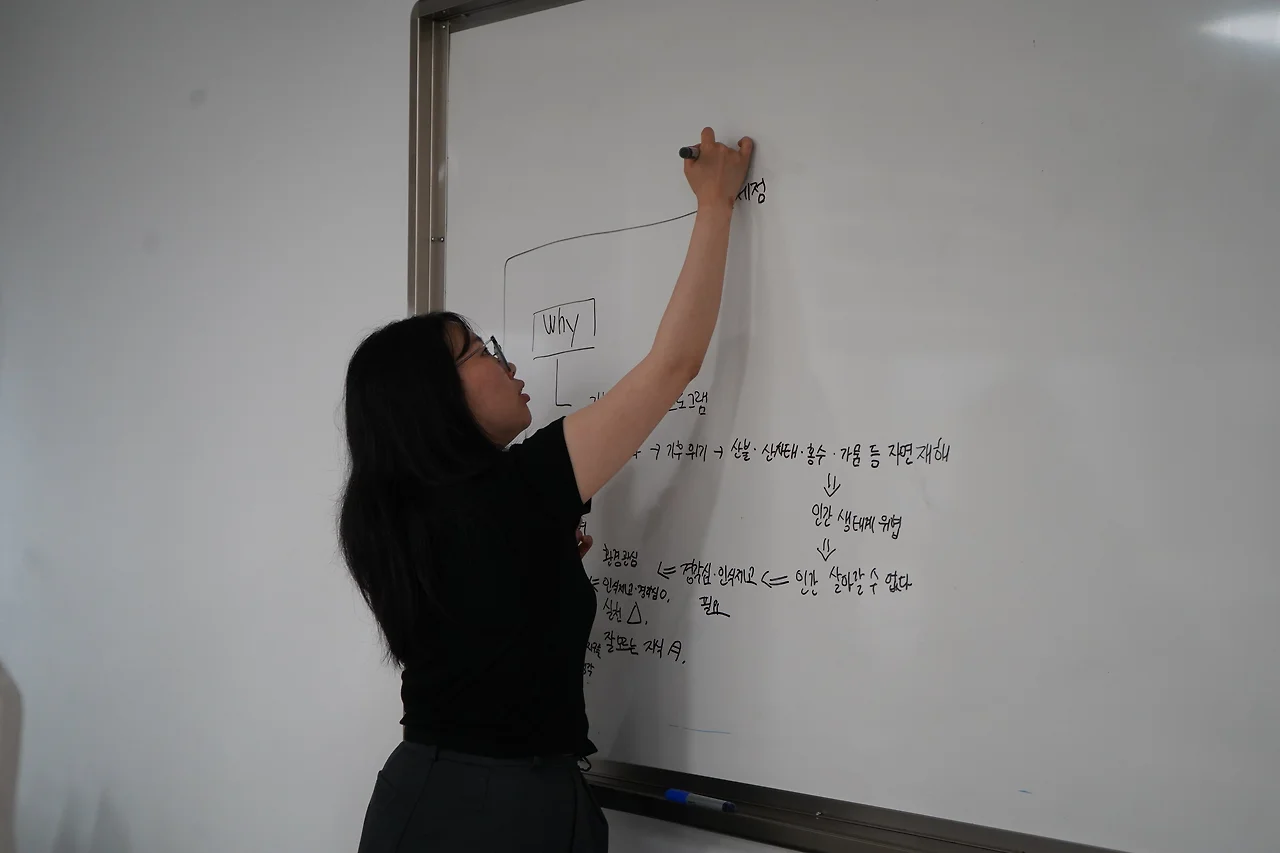 세정
why
로그램
→ 기후위기 → 산불·산사태·홍수·가뭄 등 자연재해
⇓
인간 생태계 위협
⇓
환경관심 ⇐ 경각심·인식제고 ⇐ 인간 살아갈 수 없다
⇐ 인식제고·경각심 O. 필요
실천 △.
잘모르는 지식